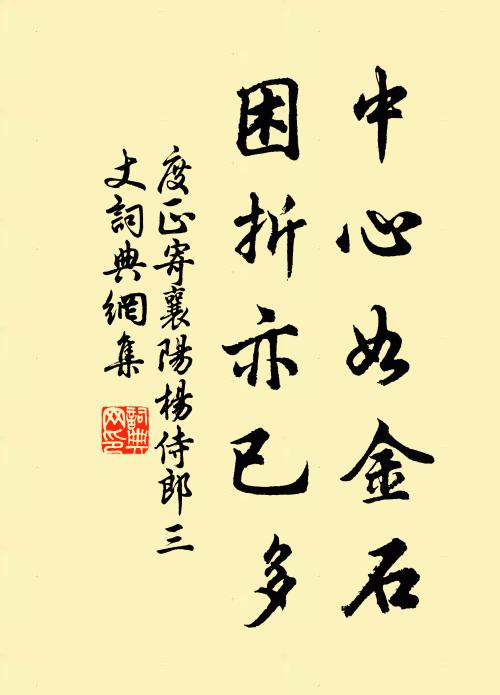 中心如金石
困折亦已多
度正寄襄陽楊侍郎三
丈詞典網集
詞典
网印